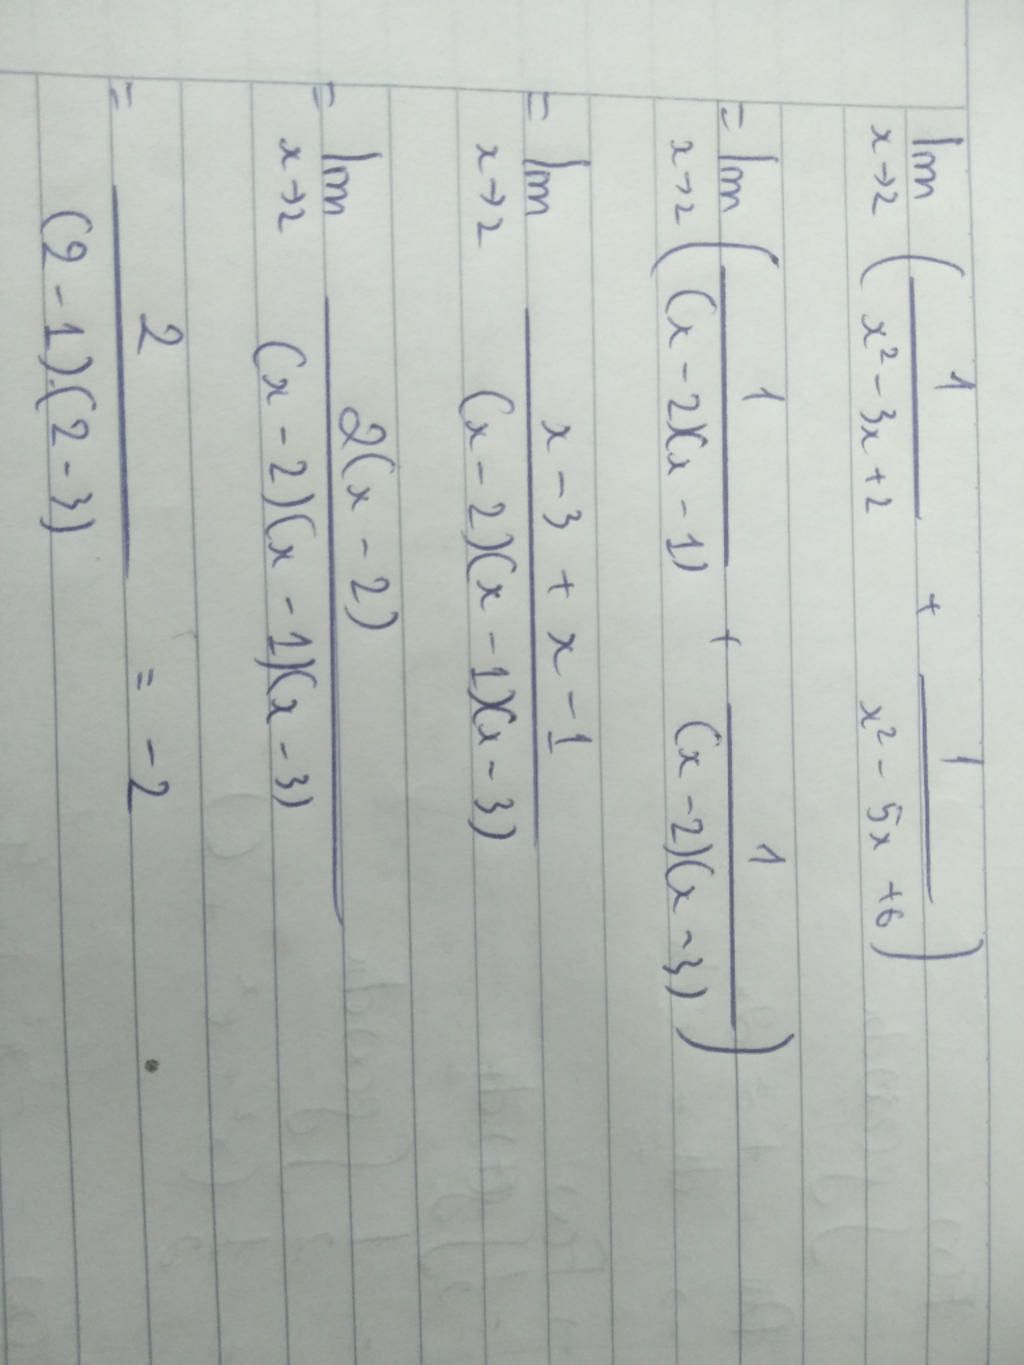 lim x→2 ( 1/(x² - 3x + 2) + 1/(x² - 5x + 6) )
= lim x→2 ( 1/((x - 2)(x - 1)) + 1/((x - 2)(x - 3)) )
= lim x→2 (x - 3 + x - 1)/((x - 2)(x - 1)(x - 3))
= lim x→2 2(x - 2)/((x - 2)(x - 1)(x - 3))
= 2/((2 - 1).(2 - 3)) = -2